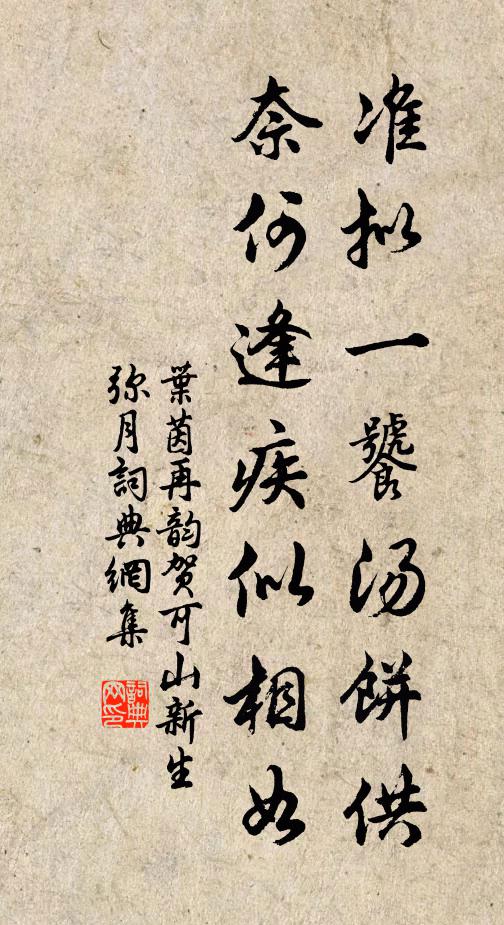 准拟一饕汤饼供
奈何逢疾似相如
葉茵再韵贺可山新生
弥月詞典網集
詞典网印